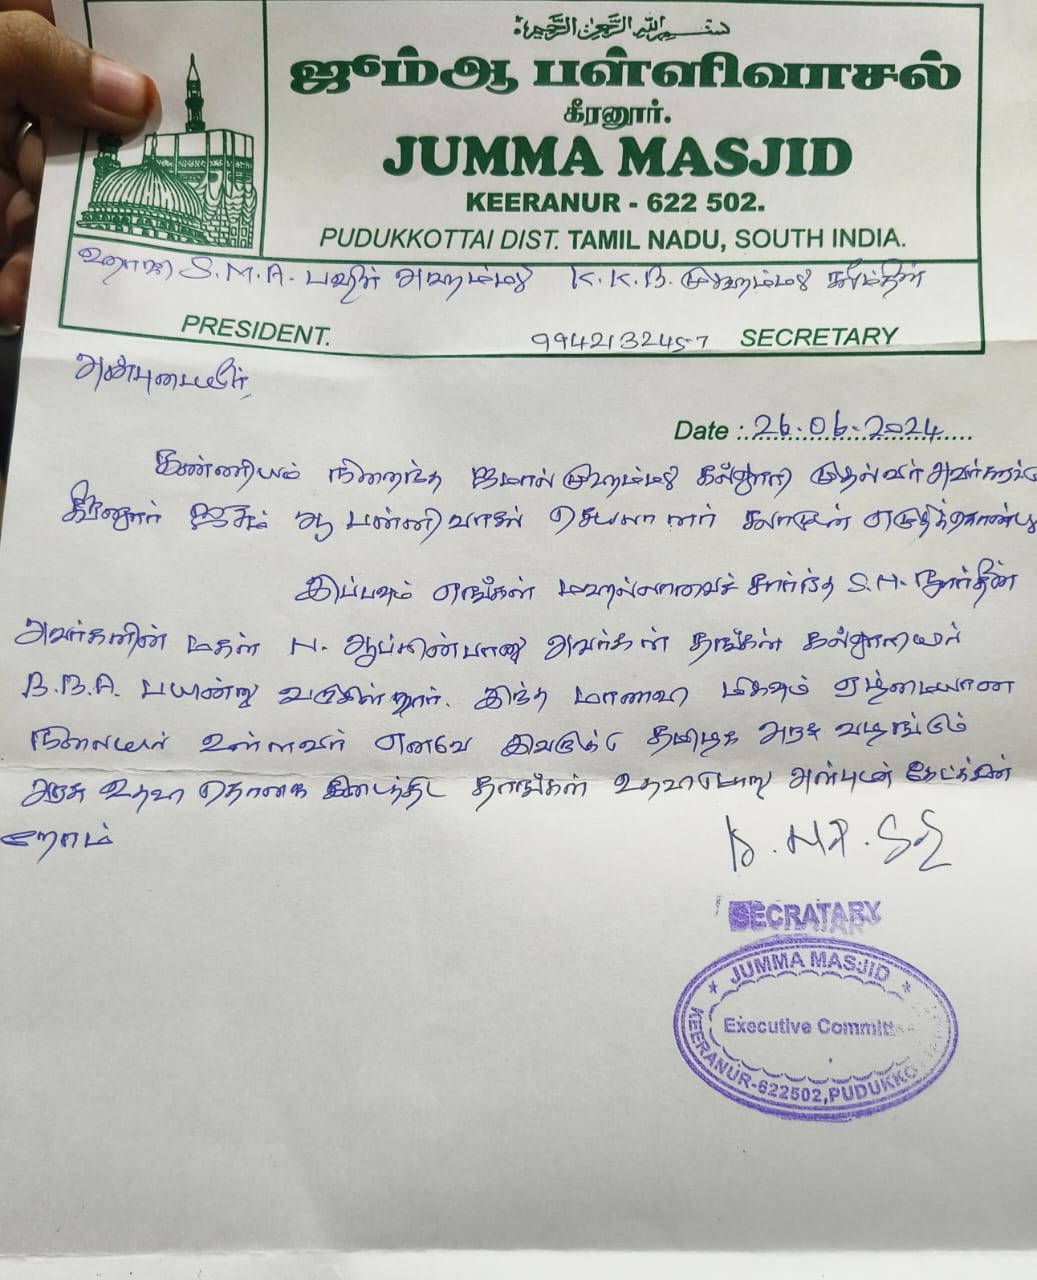 بسم الله الرحمن الرحيم
ஜூம்ஆ பள்ளிவாசல்
கீரனூர்.
JUMMA MASJID
KEERANUR - 622 502.
PUDUKKOTTAI DIST. TAMIL NADU, SOUTH INDIA.
S.M.A. பஷீர் அஹம்மது K.K.B. முஹம்மது
PRESIDENT. 9942132457 SECRETARY
அன்புடையீர்,
Date : 26.06.2024
கண்ணியம் நிறைந்த ஜமால் முஹம்மது கல்லூரி முதல்வர்
கீரனூர் ஜும் ஆ பள்ளிவாசல் செயலாளர் சலாமுடன்
இப்பவும் எங்கள் மஹல்லாவைச் சார்ந்த S.H. நூர்தீன்
அவர்களின் மகள் N. ஆப்ரின்பானு அவர்கள் தாங்கள் கல்லூரியில்
B.B.A. பயின்று வருகின்றார். இந்த மாணவி மிகவும் ஏழ்மையான
நிலையில் உள்ளவர் எனவே இவருக்கு தமிழக அரசு வழங்கும்
அரசு உதவி தொகை கிடைத்திட தாங்கள் உதவுமாறு அன்புடன் கேட்கின்
றோம்
SECRATARY
JUMMA MASJID
Executive Committ
KEERANUR-622502, PUDUKKO